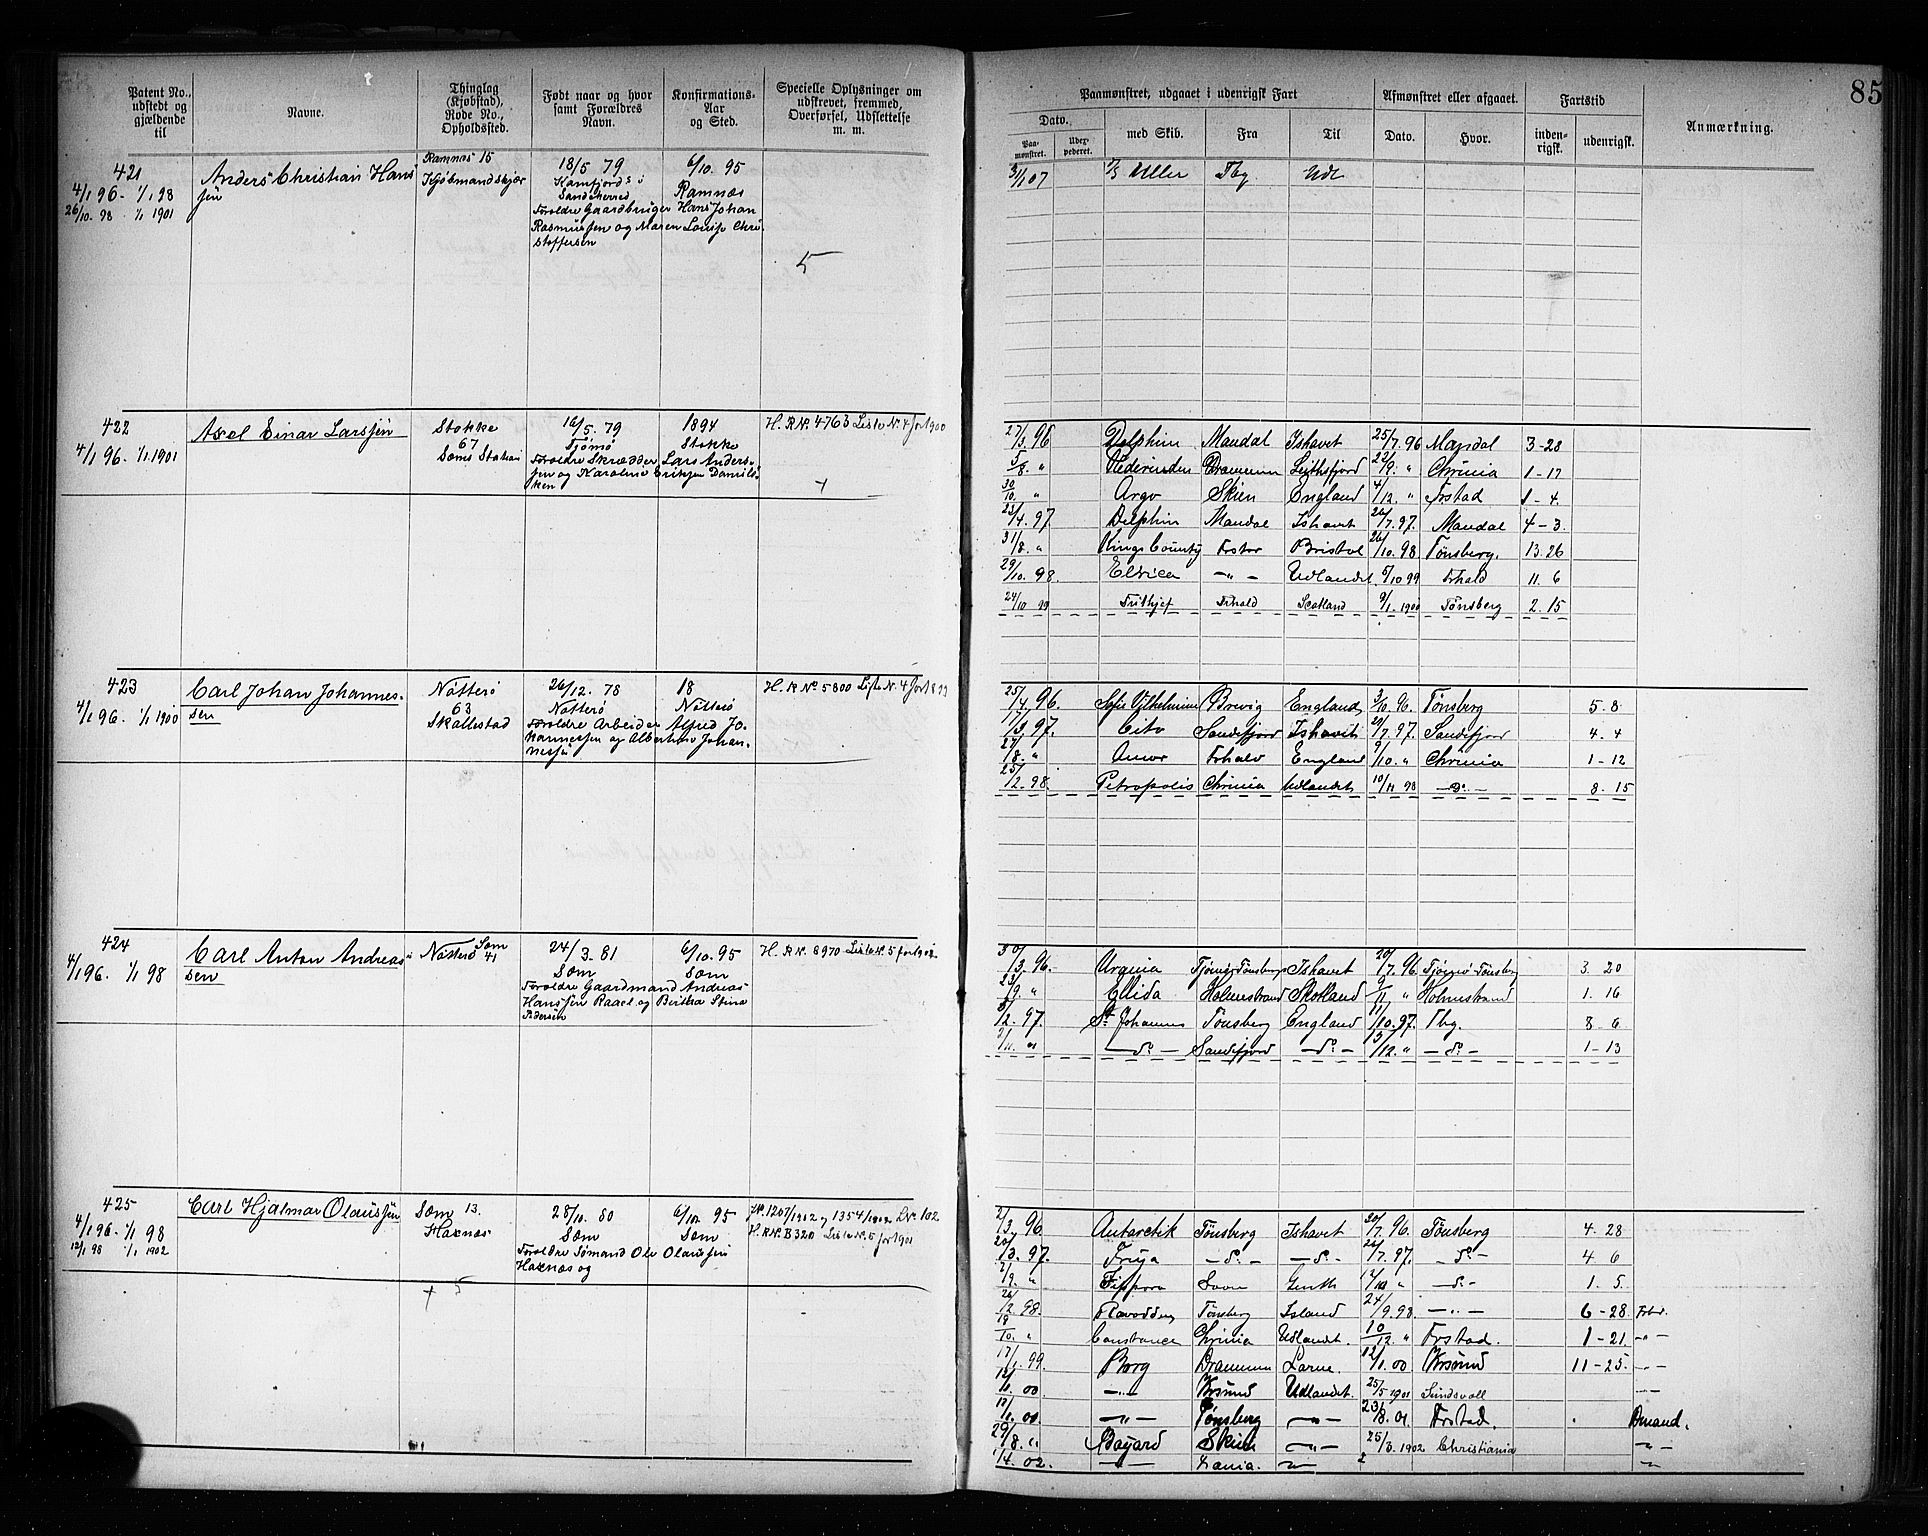 85
Patent No., udstedt og gjældende til
Navne.
Thinglag (Kjøbstad), Rode No., Opholdssted.
Født naar og hvor samt Forældres Navn.
Konfirmations-Aar og Sted.
Specielle Oplysninger om udskrevet, fremmed, Overførsel, Udslettelse m. m.
Paamønstret, udgaaet i udenrigsk Fart
Afmønstret eller afgaaet.
Fartstid
Anmærkning.
Dato.
med Skib.
Fra
Til
Dato.
Hvor.
inden-rigsk.
udenrigsk.
Paa-mønstret.
Udex-pederet.
421
4/1 96. 1/1 98
26/10. 98 . 1/1 1901
Anders Christian Hans
sen
Ramnæs 15
Kjøbmandskjær
18/5 79
Kamfjord i
Sandeherred
Forældre Gaardbruger Hans Johan
Rasmussen og Maren Lovise Chri
stoffersen
6/10. 95
Ramnæs
5
3/1 07 Uller Tbg Udl
422
4/1 96. 1/1 1901
Axel Einar Larssen
Stokke
67
Sems Station
16/5. 79
Tjømø
Forældre Skrædder Lars Anders-
sen og Karoline Eriksen Daniels
ken
1894
Stokke
H. R No. 4763 Liste No. 4 for 1900
27/3. 96 Delphin Mandal Ishavet 25/7. 96 Mandal 3-28
5/8. " Drammen Leithsfjord 22/9. " Chrinia 1-17
30/10. " Argo Skien England 4/12. " Frstad 1-4.
23/4. 97. Delphin Mandal Ishavet 26/7. 97. Mandal 4-3.
31/8. " Kings County Frstad Bristol 26/10. 98 Tønsberg. 13.26
29/10. 98 Ellrica -"- Udlandet 5/10 99 Frhald 11. 6
24/10 99 Frithjof Frhald Scotland 9/1. 1900 Tønsberg 2.15
423
4/1 96. 1/1 1900
Carl Johan Johannes-
sen
Nøtterø
63
Skallestad
26/12. 78
Nøtterø
Forældre Arbeider Alfred Jo-
hannessen og Albertine Johan-
nessen
18
Nøtterø
H. R No. 5800 Liste No. 4 for 1899
25/4. 96. Sofie Vilhelmine Brevig England 3/6. 96. Tønsberg 5. 8
17/3. 97. Cito Sandefjord Ishavet 20/7. 97. Sandefjord 4. 4
27/8. " Amor Frhald England 9/10. " Chrinia 1-12
25/2. 98. Petropolis Chrinia Udlandet 10/11 98 -Do.- 8. 15
424
4/1 96. 1/1 98
Carl Anton Andreas-
sen
Nøtterø Sem
41
24/3. 81
Sem
Forældre Gaardmand Andreas
Hanssen Raael og Bertha Stine
Pedersen
6/10. 95
Sem
H. R No. 8970 Liste No. 5 for 1902.
30/3. 96. Urania Tjømø-Tønsberg Ishavet 20/7. 96 Tjømø-Tønsberg 3. 20
23/9. " Ellida Holmestrand Skotland 9/11. " Holmestrand 1. 16
5/2. 97. St. Johannes Tønsberg England 11/10. 97. Tbg. 8-6
3/11. " -do.- Sandefjord -do.- 13/12. " -do.- 1-13
425
4/1 96. 1/1 98
12/1 98 1/1 1902
Carl Hjalmar Olaussen
Sem 13.
Haxnæs
28/10. 80
Sem
Forældre Sømand Ole Olaussen
Haxnæs og
6/10. 95
Sem
No. 1207/1902 og 1354/1902 L No. 102
H. R No. B320 Liste No. 5 for 1901
5
2/3. 96 Antarctik Tønsberg Ishavet 30/7. 96. Tønsberg 4. 28
20/3. 97. Freya -do.- -do.- 26/7. 97. -do.- 4 6
2/9. " Zippora Leith 14/10 " -do.- 1. 5.
26/2. 98. Tønsberg Island 24/9. 98. -"- 6-28
18/10. " Constance Chrinia Udlandet. 10/12. " Frstad. 1-21. -"-
17/1. 99. Borg Drammen Larne 12/1. 00 Krsund 11-25. -"-
12/1. 00 -"- Krsund Udlandet. 25/5 1901 Sundsvall -"-
-"- Tønsberg -"- 23/8. 01. Frstad.
29/8. " Bayard Skien -"- 25/3. 1902 Christiania -"-
1/4. 02. -"- Xania. -"- -"-